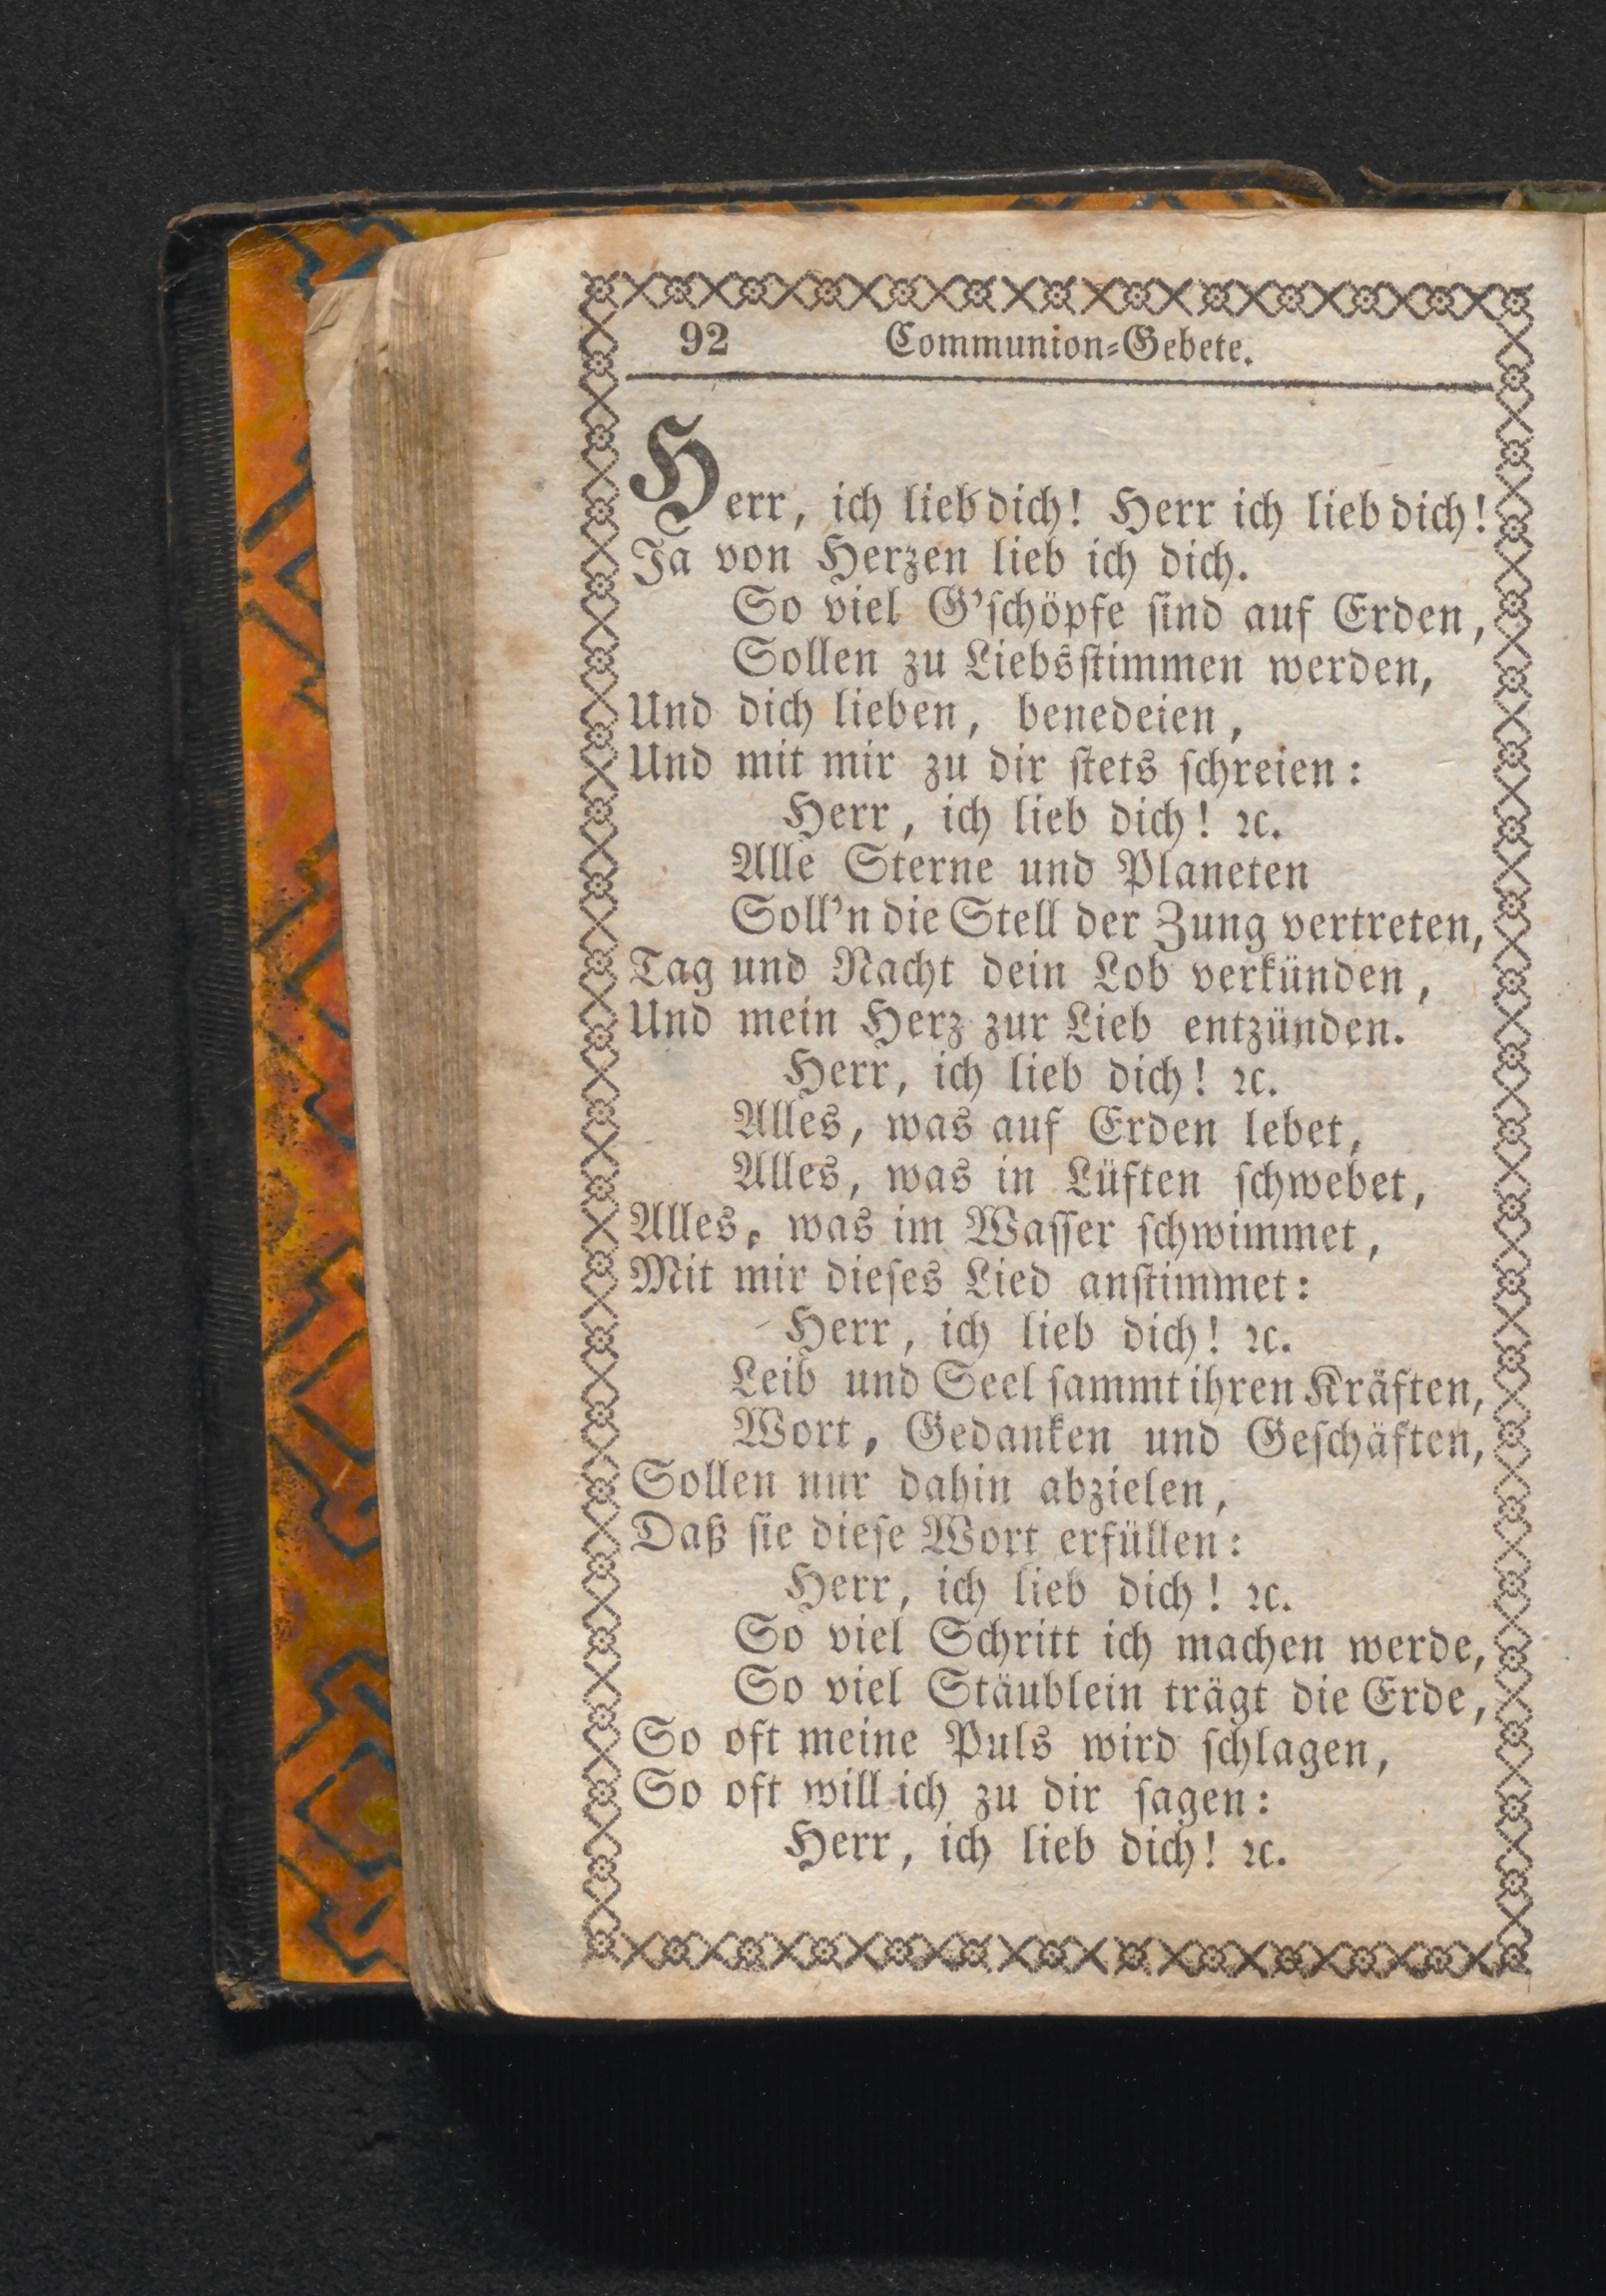 92 Communion=Gebete.
Herr, ich lieb dich! Herr ich lieb dich!
Ja von Herzen lieb ich dich.
So viel G'ſchöpfe ſind auf Erden,
Sollen zu Liebsſtimmen werden,
Und dich lieben, benedeien,
Und mit mir zu dir ſtets ſchreien:
Herr, ich lieb dich! ꝛc.
Alle Sterne und Planeten
Soll'n die Stell der Zung vertreten,
Tag und Nacht dein Lob verkünden,
Und mein Herz zur Lieb entzünden.
Herr, ich lieb dich! ꝛc.
Alles, was auf Erden lebet,
Alles, was in Lüften ſchwebet,
Alles, was im Waſſer ſchwimmet,
Mit mir dieſes Lied anſtimmet:
Herr, ich lieb dich! ꝛc.
Leib und Seel ſammt ihren Kräften,
Wort, Gedanken und Geſchäften,
Sollen nur dahin abzielen,
Daß ſie dieſe Wort erfüllen:
Herr, ich lieb dich! ꝛc.
So viel Schritt ich machen werde,
So viel Stäublein trägt die Erde,
So oft meine Puls wird ſchlagen,
So oft will ich zu dir ſagen:
Herr, ich lieb dich! ꝛc.